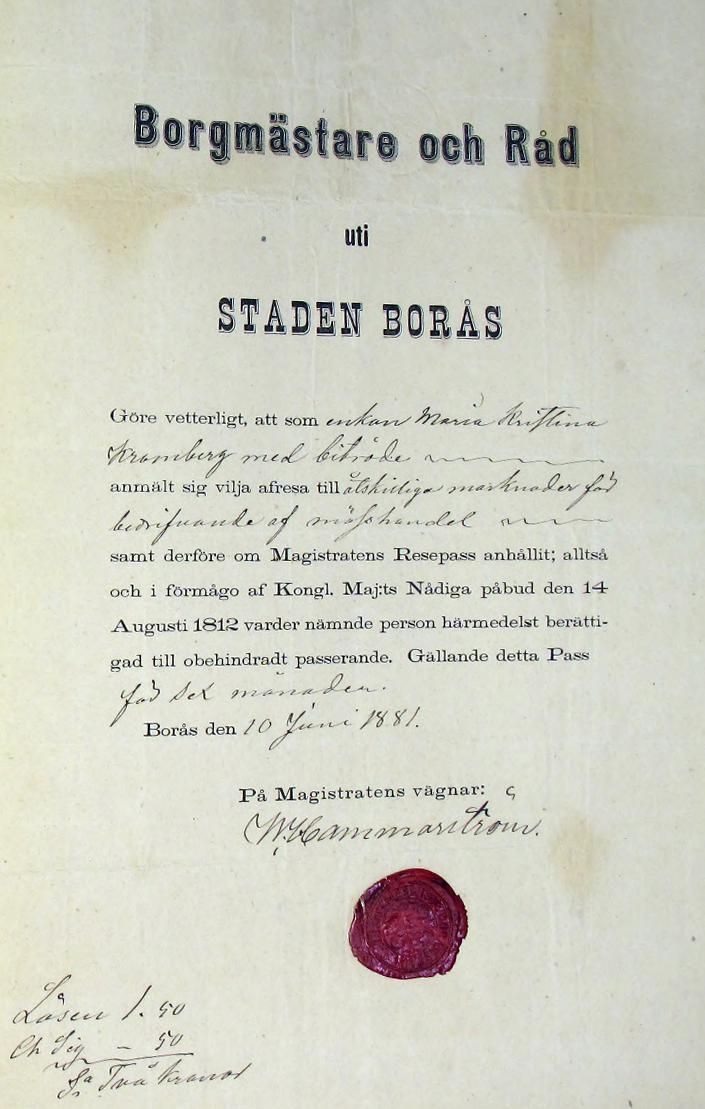 Borgmästare och Råd
uti
STADEN BORÅS
Göre vetterligt, att som enkan Maria Kristina
Kramberg med biträde
anmält sig vilja afresa till åtskilliga marknader för
bedrifvande af mässhandel
samt derföre om Magistratens Resepass anhållit; alltså
och i förmågo af Kongl. Maj:ts Nådiga påbud den 14
Augusti 1812 varder nämnde person härmedelst berätti-
gad till obehindradt passerande. Gällande detta Pass
för sex månader.
Borås den 10 Juni 1881.
På Magistratens vägnar:
W. Hammarström.
Lösen 1. 50
Ch Sig – 50
Sa Två kronor